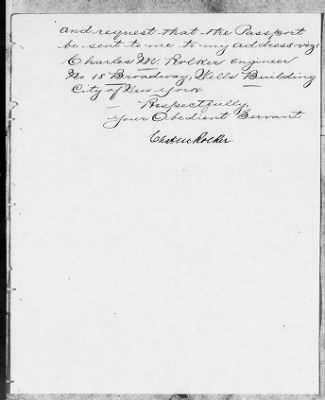 and request that the Passport
be sent to me to my address viz:
Charles M. Rolker Engineer
No 18 Broadway, Wells Building
City of New York.
Respectfully,
Your Obedient Servant
Chas M Rolker